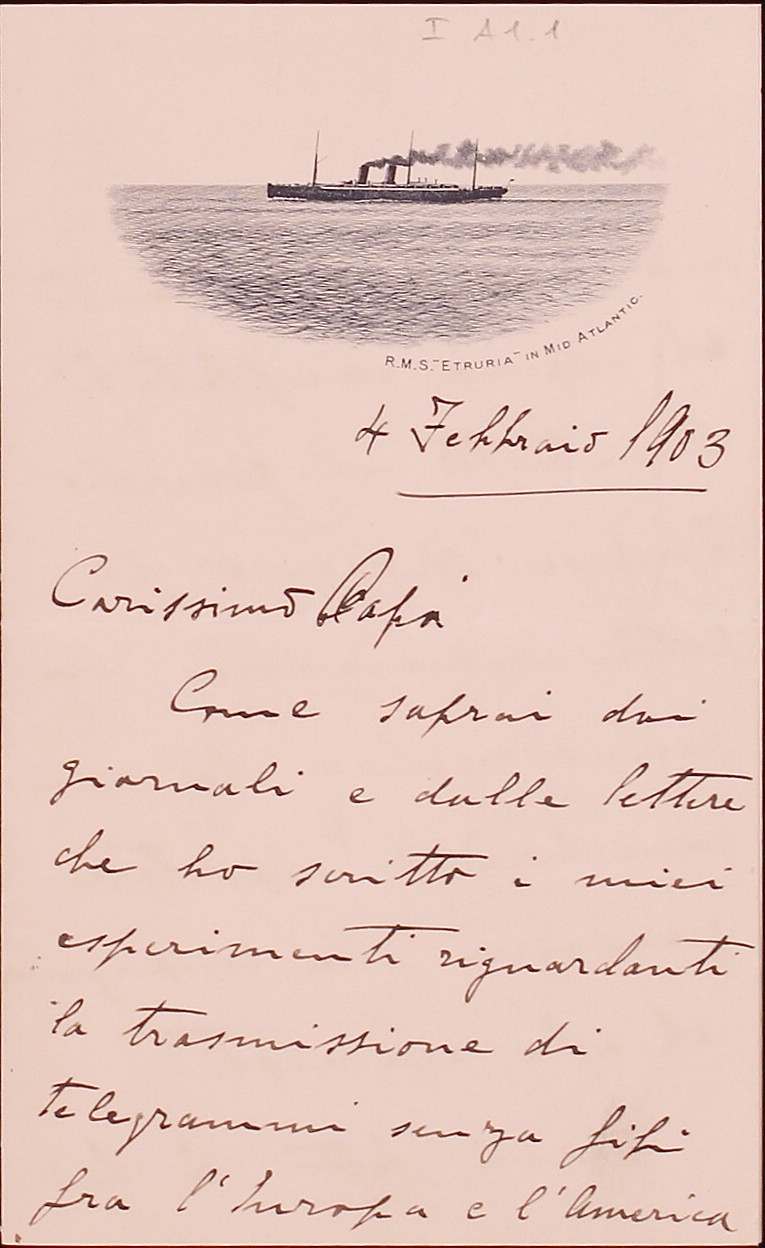 I A1.1
R.M.S. "ETRURIA" IN MID ATLANTIC.
4 Febbraio 1903
Carissimo Papà
Come saprai dai
giornali e dalle lettere
che ho scritto i miei
esperimenti riguardanti
la trasmissione di
telegrammi senza fili
fra l'Europa e l'America